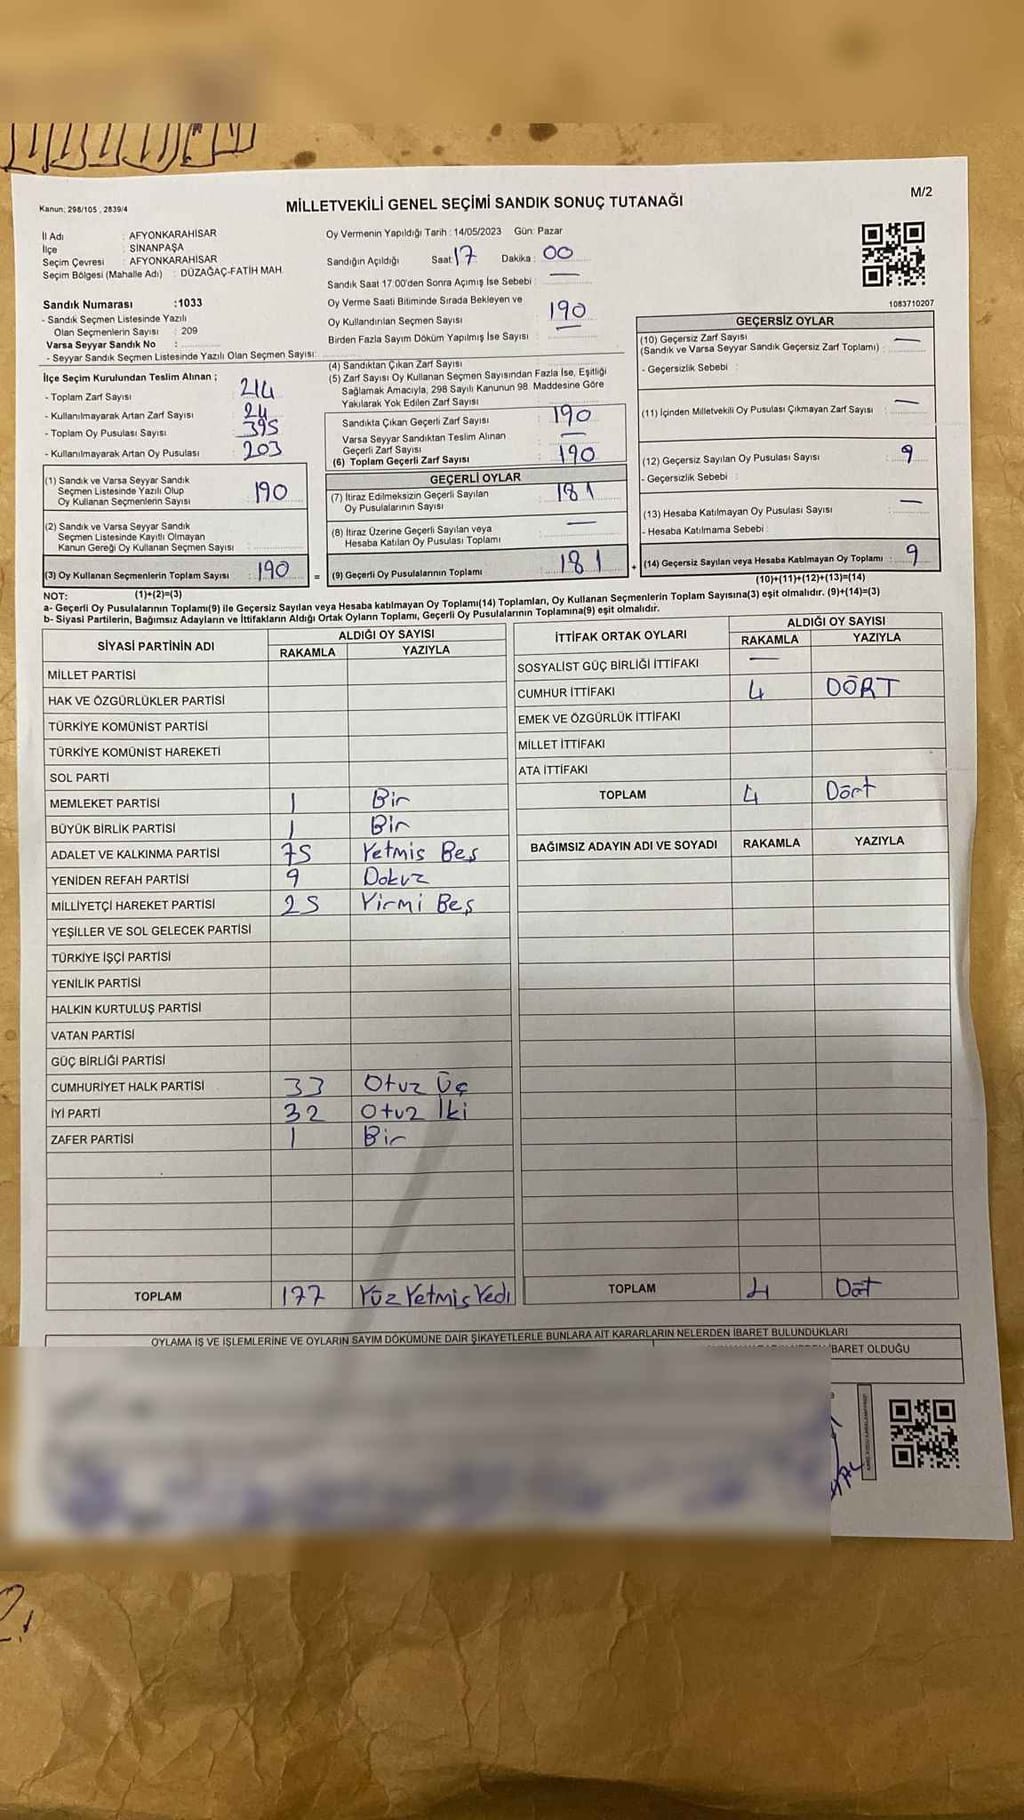 M/2
Kanun: 298/105 , 2839/4
MİLLETVEKİLİ GENEL SEÇİMİ SANDIK SONUÇ TUTANAĞI
İl Adı : AFYONKARAHİSAR
İlçe : SİNANPAŞA
Seçim Çevresi : AFYONKARAHİSAR
Seçim Bölgesi (Mahalle Adı) : DÜZAĞAÇ-FATİH MAH.
Sandık Numarası :1033
- Sandık Seçmen Listesinde Yazılı
Olan Seçmenlerin Sayısı : 209
Varsa Seyyar Sandık No :
- Seyyar Sandık Seçmen Listesinde Yazılı Olan Seçmen Sayısı:
Oy Vermenin Yapıldığı Tarih : 14/05/2023 Gün: Pazar
Sandığın Açıldığı Saat: 17 Dakika : 00
Sandık Saat 17.00'den Sonra Açımış İse Sebebi : —
Oy Verme Saati Bitiminde Sırada Bekleyen ve
Oy Kullandırılan Seçmen Sayısı 190
Birden Fazla Sayım Döküm Yapılmış İse Sayısı : —
1083710207
İlçe Seçim Kurulundan Teslim Alınan ;
- Toplam Zarf Sayısı 214
- Kullanılmayarak Artan Zarf Sayısı 24
- Toplam Oy Pusulası Sayısı 395
- Kullanılmayarak Artan Oy Pusulası 203
(1) Sandık ve Varsa Seyyar Sandık
Seçmen Listesinde Yazılı Olup
Oy Kullanan Seçmenlerin Sayısı 190
(2) Sandık ve Varsa Seyyar Sandık
Seçmen Listesinde Kayıtlı Olmayan
Kanun Gereği Oy Kullanan Seçmen Sayısı
(3) Oy Kullanan Seçmenlerin Toplam Sayısı 190
(4) Sandıktan Çıkan Zarf Sayısı
(5) Zarf Sayısı Oy Kullanan Seçmen Sayısından Fazla İse, Eşitliği
Sağlamak Amacıyla, 298 Sayılı Kanunun 98. Maddesine Göre
Yakılarak Yok Edilen Zarf Sayısı
Sandıkta Çıkan Geçerli Zarf Sayısı 190
Varsa Seyyar Sandıktan Teslim Alınan
Geçerli Zarf Sayısı —
(6) Toplam Geçerli Zarf Sayısı 190
GEÇERLİ OYLAR
(7) İtiraz Edilmeksizin Geçerli Sayılan
Oy Pusulalarının Sayısı 181
(8) İtiraz Üzerine Geçerli Sayılan veya
Hesaba Katılan Oy Pusulası Toplamı —
= (9) Geçerli Oy Pusulalarının Toplamı 181 +
GEÇERSİZ OYLAR
(10) Geçersiz Zarf Sayısı
(Sandık ve Varsa Seyyar Sandık Geçersiz Zarf Toplamı) : —
- Geçersizlik Sebebi :
(11) İçinden Milletvekili Oy Pusulası Çıkmayan Zarf Sayısı —
(12) Geçersiz Sayılan Oy Pusulası Sayısı 9
- Geçersizlik Sebebi :
(13) Hesaba Katılmayan Oy Pusulası Sayısı —
- Hesaba Katılmama Sebebi :
(14) Geçersiz Sayılan veya Hesaba Katılmayan Oy Toplamı 9
NOT: (1)+(2)=(3) (10)+(11)+(12)+(13)=(14)
a- Geçerli Oy Pusulalarının Toplamı(9) ile Geçersiz Sayılan veya Hesaba katılmayan Oy Toplamı(14) Toplamları, Oy Kullanan Seçmenlerin Toplam Sayısına(3) eşit olmalıdır. (9)+(14)=(3)
b- Siyasi Partilerin, Bağımsız Adayların ve İttifakların Aldığı Ortak Oyların Toplamı, Geçerli Oy Pusulalarının Toplamına(9) eşit olmalıdır.
SİYASİ PARTİNİN ADI ALDIĞI OY SAYISI
RAKAMLA YAZIYLA
MİLLET PARTİSİ
HAK VE ÖZGÜRLÜKLER PARTİSİ
TÜRKİYE KOMÜNİST PARTİSİ
TÜRKİYE KOMÜNİST HAREKETİ
SOL PARTİ
MEMLEKET PARTİSİ 1 Bir
BÜYÜK BİRLİK PARTİSİ 1 Bir
ADALET VE KALKINMA PARTİSİ 75 Yetmis Beş
YENİDEN REFAH PARTİSİ 9 Dokuz
MİLLİYETÇİ HAREKET PARTİSİ 25 Yirmi Beş
YEŞİLLER VE SOL GELECEK PARTİSİ
TÜRKİYE İŞÇİ PARTİSİ
YENİLİK PARTİSİ
HALKIN KURTULUŞ PARTİSİ
VATAN PARTİSİ
GÜÇ BİRLİĞİ PARTİSİ
CUMHURİYET HALK PARTİSİ 33 Otuz Üç
İYİ PARTİ 32 Otuz İki
ZAFER PARTİSİ 1 Bir
TOPLAM 177 Yüz Yetmiş Yedi
İTTİFAK ORTAK OYLARI ALDIĞI OY SAYISI
RAKAMLA YAZIYLA
SOSYALİST GÜÇ BİRLİĞİ İTTİFAKI —
CUMHUR İTTİFAKI 4 DÖRT
EMEK VE ÖZGÜRLÜK İTTİFAKI
MİLLET İTTİFAKI
ATA İTTİFAKI
TOPLAM 4 Dört
BAĞIMSIZ ADAYIN ADI VE SOYADI RAKAMLA YAZIYLA
TOPLAM 4
OYLAMA İŞ VE İŞLEMLERİNE VE OYLARIN SAYIM DÖKÜMÜNE DAİR ŞİKAYETLERLE BUNLARA AİT KARARLARIN NELERDEN İBARET BULUNDUKLARI
İBARET OLDUĞU